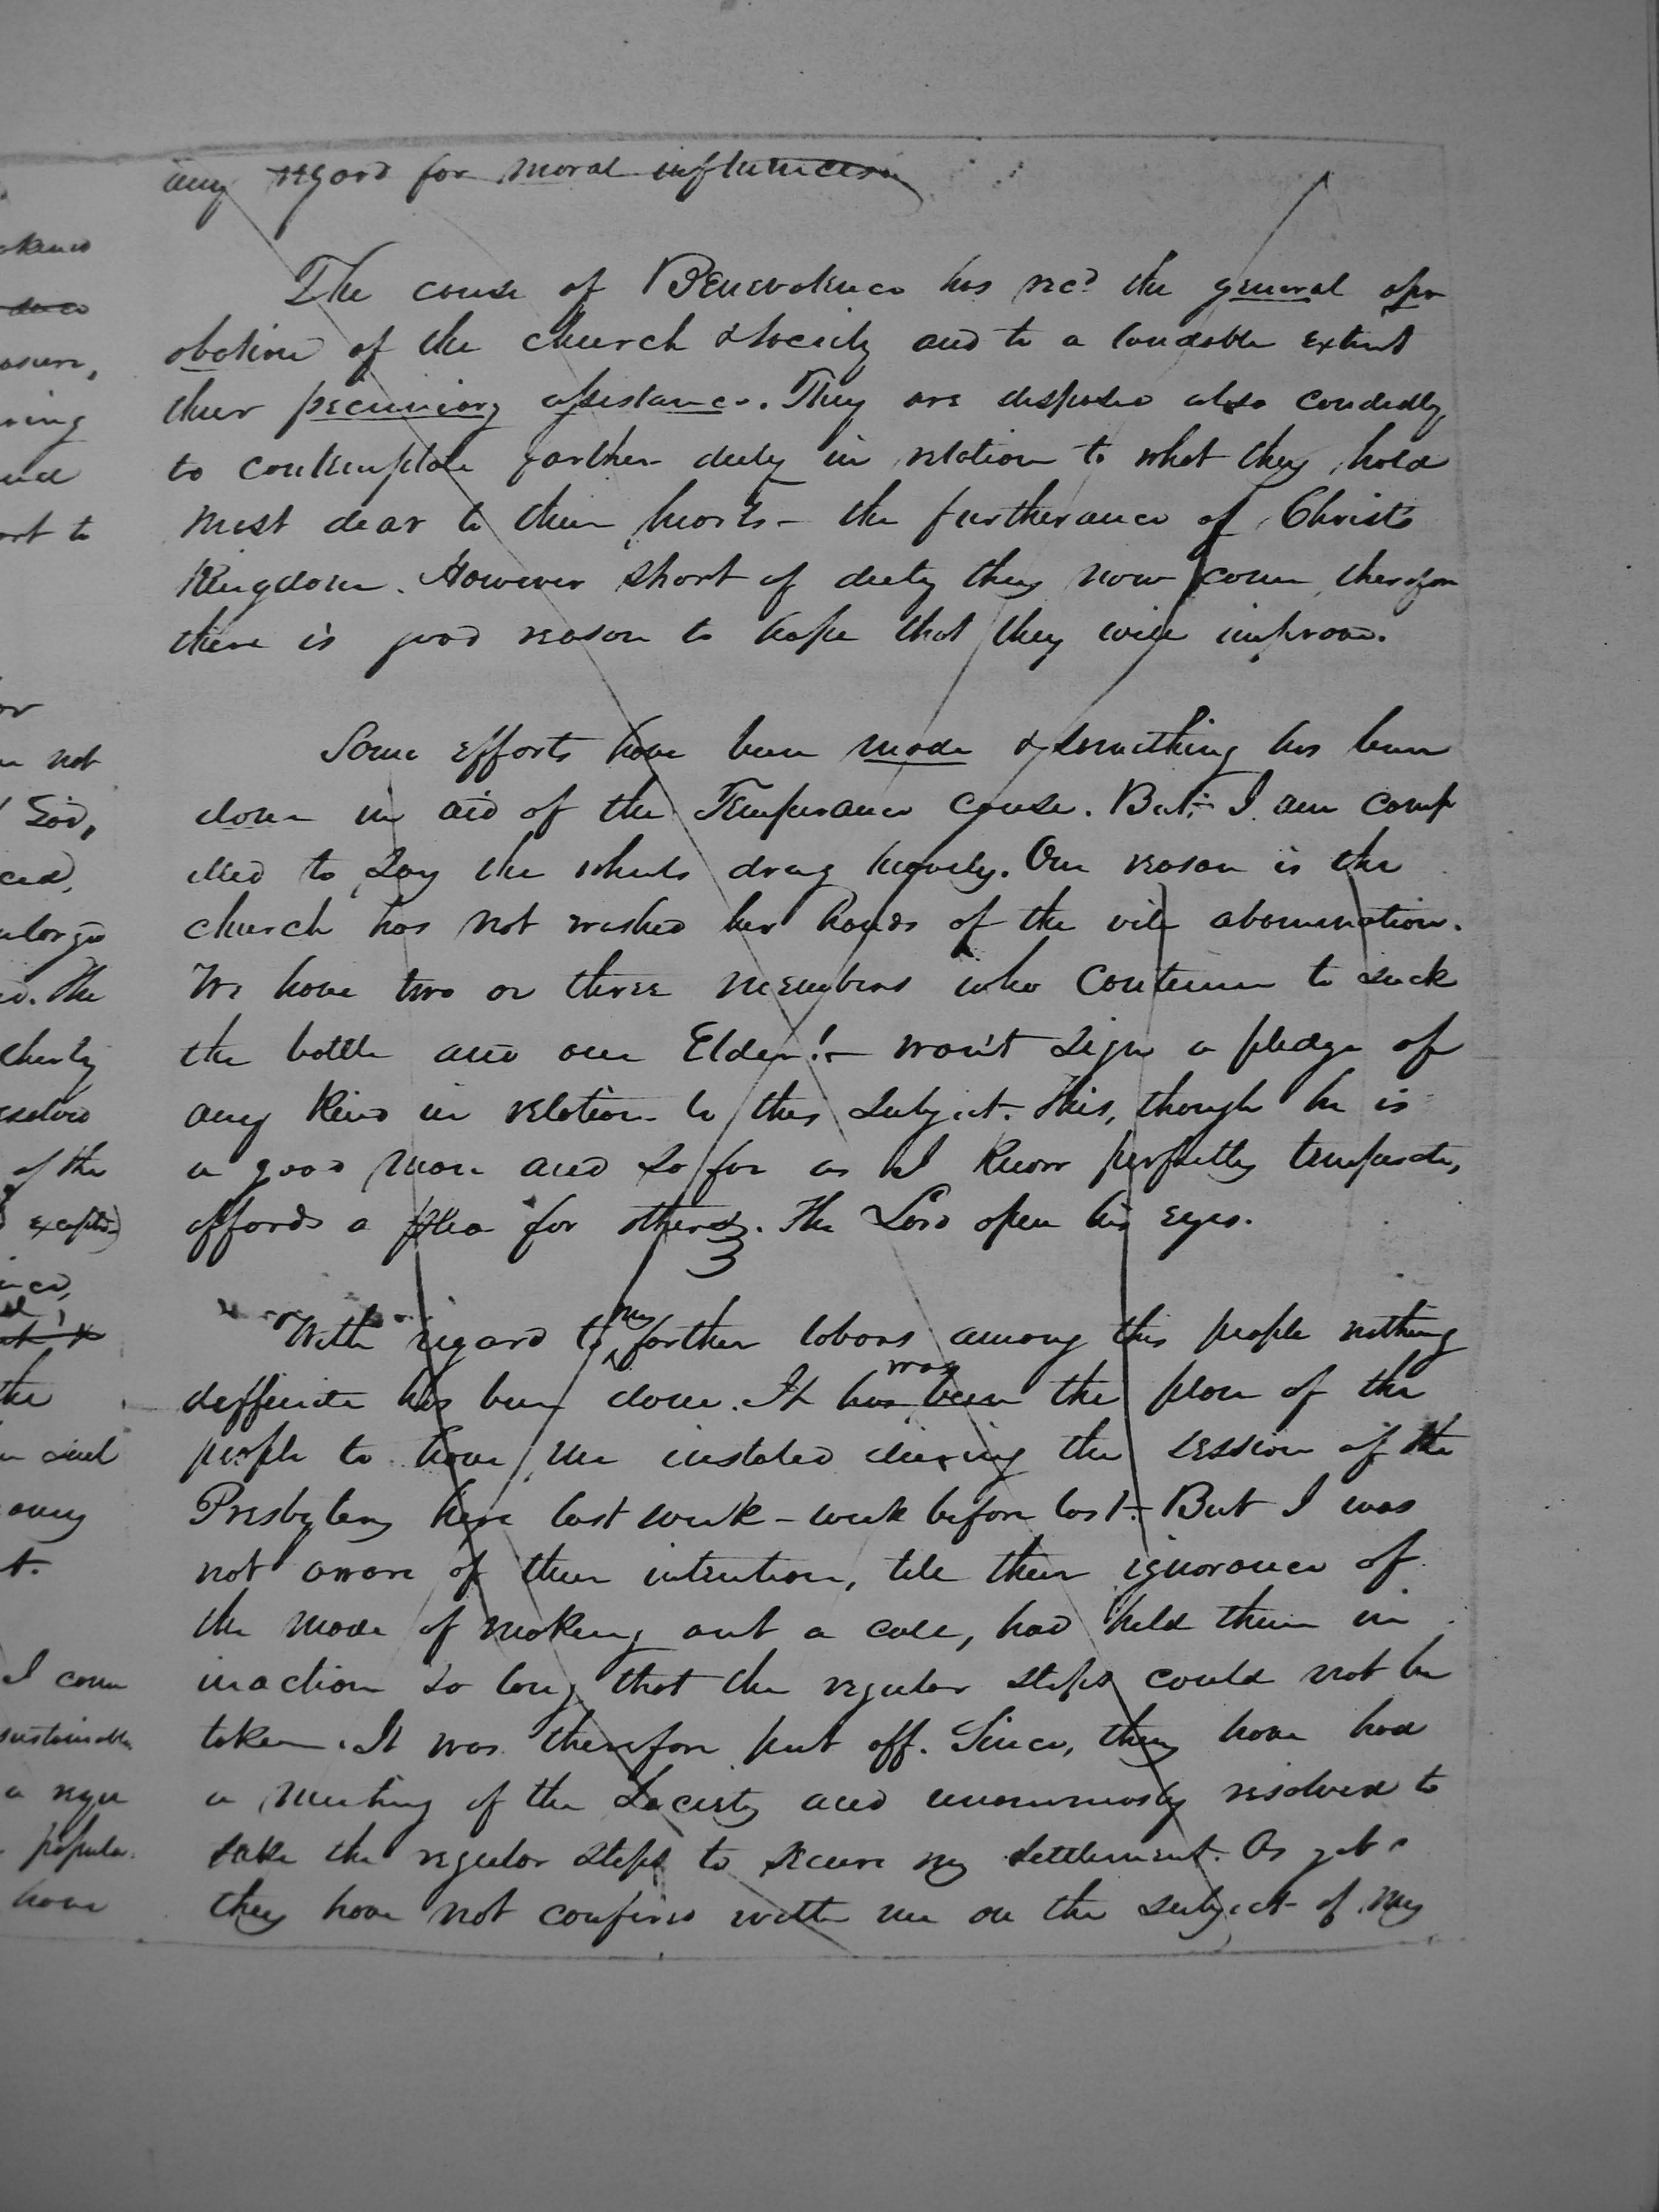 any regard for moral influences
The cause of Benevolence has recd the general apr
obation of the church & society and to a laudable extent
their pecuniary assistance. They are disposed also candidly
to contemplate farther duty in relation to what they hold
most dear to their hearts - the furtherance of Christ's
Kingdom. However short of duty they now come, therefore
there is good reason to hope that they will improve.
Some efforts have been made & something has been
done in aid of the Temperance cause. But I am comp
elled to say the wheels drag heavily. One reason is the
church has not washed her hands of the vile abomination.
We have two or three members who continue to suck
the bottle and one Elder! - won't sign a pledge of
any kind in relation to this subject. This, though he is
a good man and so far as I know perfectly temperate,
affords a plea for others. The Lord open his eyes.
3
With regard to my farther labors among this people nothing
deffinite has been done. It has been was the plan of the
people to have me installed during the session of the
Presbytery here last week - week before last. But I was
not aware of their intention, till their ignorance of
the mode of making out a call, had held them in
inaction so long that the regular steps could not be
taken. It was therefore put off. Since, they have had
a meeting of the Society and unanimously resolved to
take the regular steps to secure my settlement. As yet
they have not confered with me on the subject of my
okened
asure,
ring
and
ort to
or
not
God,
ced,
nlarged
The
cherty
esolved
of the
excepted)
the
any
t.
I come
sustainable
a regu
popula
have